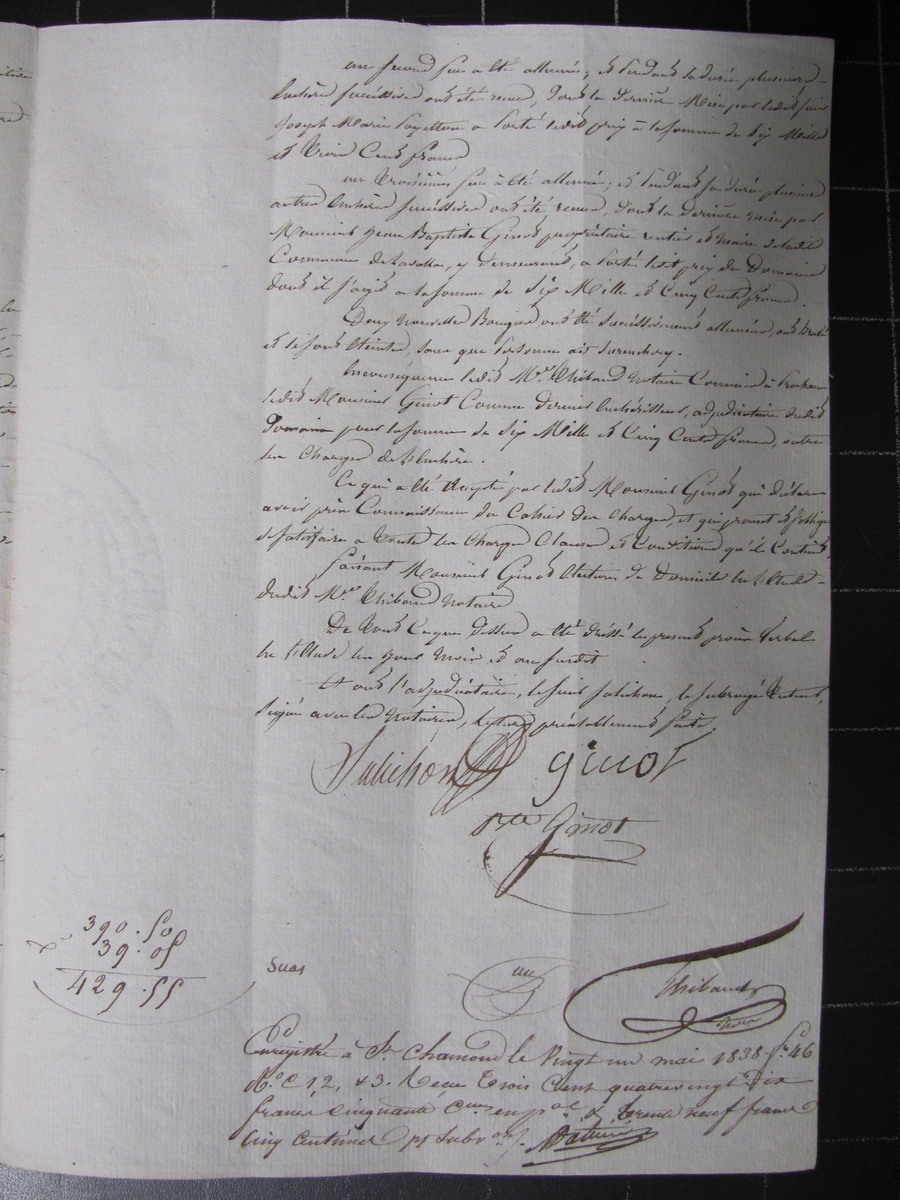 un second feu a été allumé, et pendant sa durée plusieurs
enchères successives ont été reçues, dont la dernière mise par ledit sieur
Joseph Marie a porté ledit prix à la somme de Six Mille
et Cent francs
un troisième feu a été allumé, et pendant sa durée plusieurs
autres enchères successives ont été reçues, dont la dernière mise par
Monsieur Jean Baptiste Ginot propriétaire rentier et maire de ladite
Commune de Lavalla, y demeurant, a porté ledit prix du Domaine
dont il s'agit à la somme de Six Mille et Cinq Cents francs.
Deux nouvelles Bougies ont été successivement allumées, ont brulé
et se sont éteintes, sans que personne ait surenchéri.
En conséquence ledit Mre Thibaud Notaire Commis a proclamé
ledit Monsieur Ginot Comme dernier enchérisseur, adjudicataire dudit
Domaine pour la somme de Six Mille et Cinq Cents francs, outre
les Charges de l'enchère.
Ce qui a été accepté par ledit Monsieur Ginot qui déclare
avoir pris Connaissance du Cahier des Charges, et qui promet et s'oblige
de satisfaire à toutes les Charges Clauses et Conditions qu'il Contient.
faisant Monsieur Ginot élection de Domicile en l'étude
dudit Mre Thibaud Notaire
De tout Ce que dessus a été dressé le présent procès Verbal
en l'étude les jour mois et an susdit
Et ont l'adjudicataire, le sieur Salichon, le subrogé tuteur,
Signé avec les Notaires, lecture préalablement faite.
Salichon ginot
Bte Ginot
390.50
39.05
429.55
Suas
Thibaud
Enregistré à St Chamond le vingt un mai 1838 fo 46
Ro C 12, & 3. Reçu trois cent quatre vingt dix
francs cinquante Cmes en pal & trente neuf francs
Cinq Centimes pr subvon.